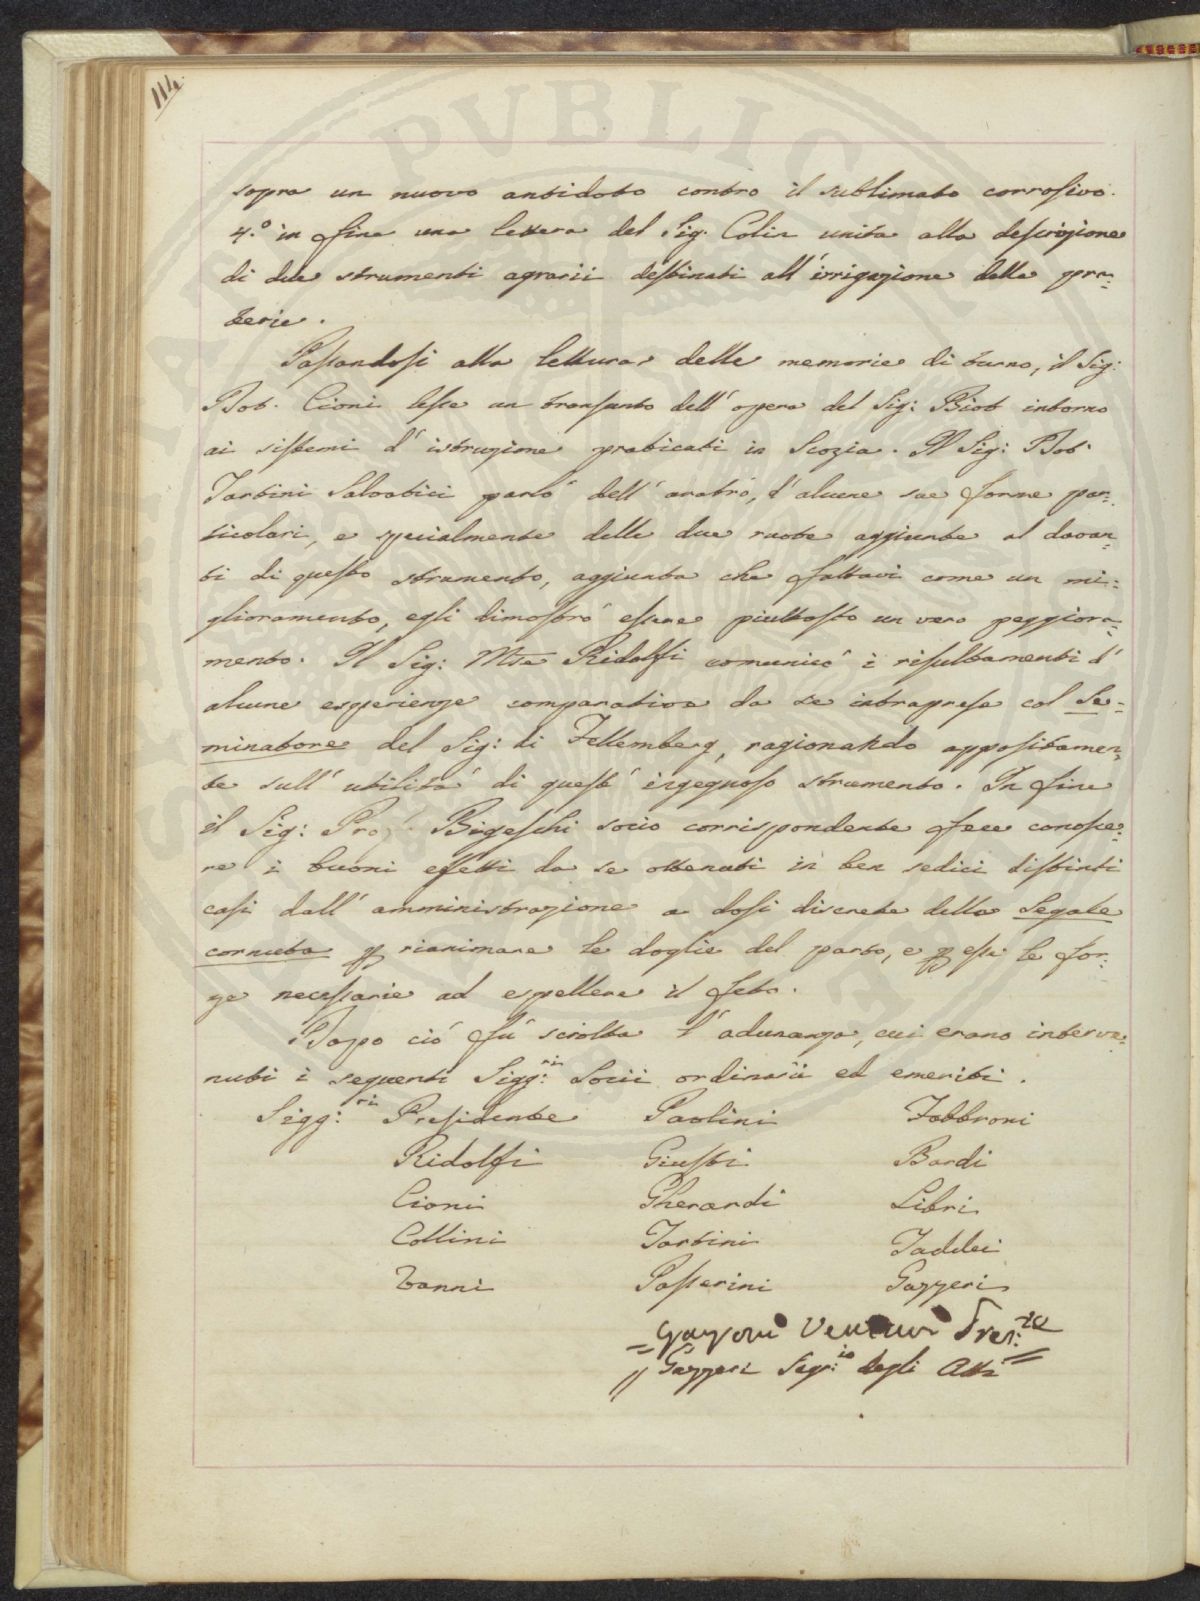 114.
sopra un nuovo antidoto contro il sublimato corrosivo.
4.° in fine una lettera del Sig. Colin unita alla descrizione
di due strumenti agrarii destinati all'irrigazione delle pra=
terie.
Passandosi alla lettura delle memorie di turno, il Sig:
Dot. Cioni lesse un transunto dell'opera del Sig: Biot intorno
ai sistemi d'istruzione praticati in Scozia. Il Sig: Dot.
Tartini Salvatici parlò dell'aratro, d'alcune sue forme par=
ticolari, e specialmente delle due ruote aggiunte al davan=
ti di questo strumento, aggiunta che fattavi come un mi=
glioramento, egli dimostrò essere piuttosto un vero peggiora=
mento. Il Sig: Mse Ridolfi comunicò i risultamenti d'
alcune esperienze comparative da se intraprese col Se=
minatore del Sig: di Fellemberg, ragionando appositamen=
te sull'utilità di quest'ingegnoso strumento. In fine
il Sig: Prof. Bigeschi socio corrispondente fece conosce=
re i buoni effetti da se ottenuti in ben sedici distinti
casi dall'amministrazione a dosi discrete della Segale
cornuta p rianimare le doglie del parto, e p esse le for=
ze necessarie ad espellere il feto.
Dopo ciò fù sciolta l'adunanza, cui erano interve=
nuti i seguenti Sigg:ri Socii ordinarii ed emeriti.
Sigg:ri Presidente Paolini Fabbroni
Ridolfi Giusti Bardi
Cioni Gherardi Libri
Collini Tartini Taddei
Vanni Passerini Gazzeri
= Gazzeri Segr:io degli Atti =